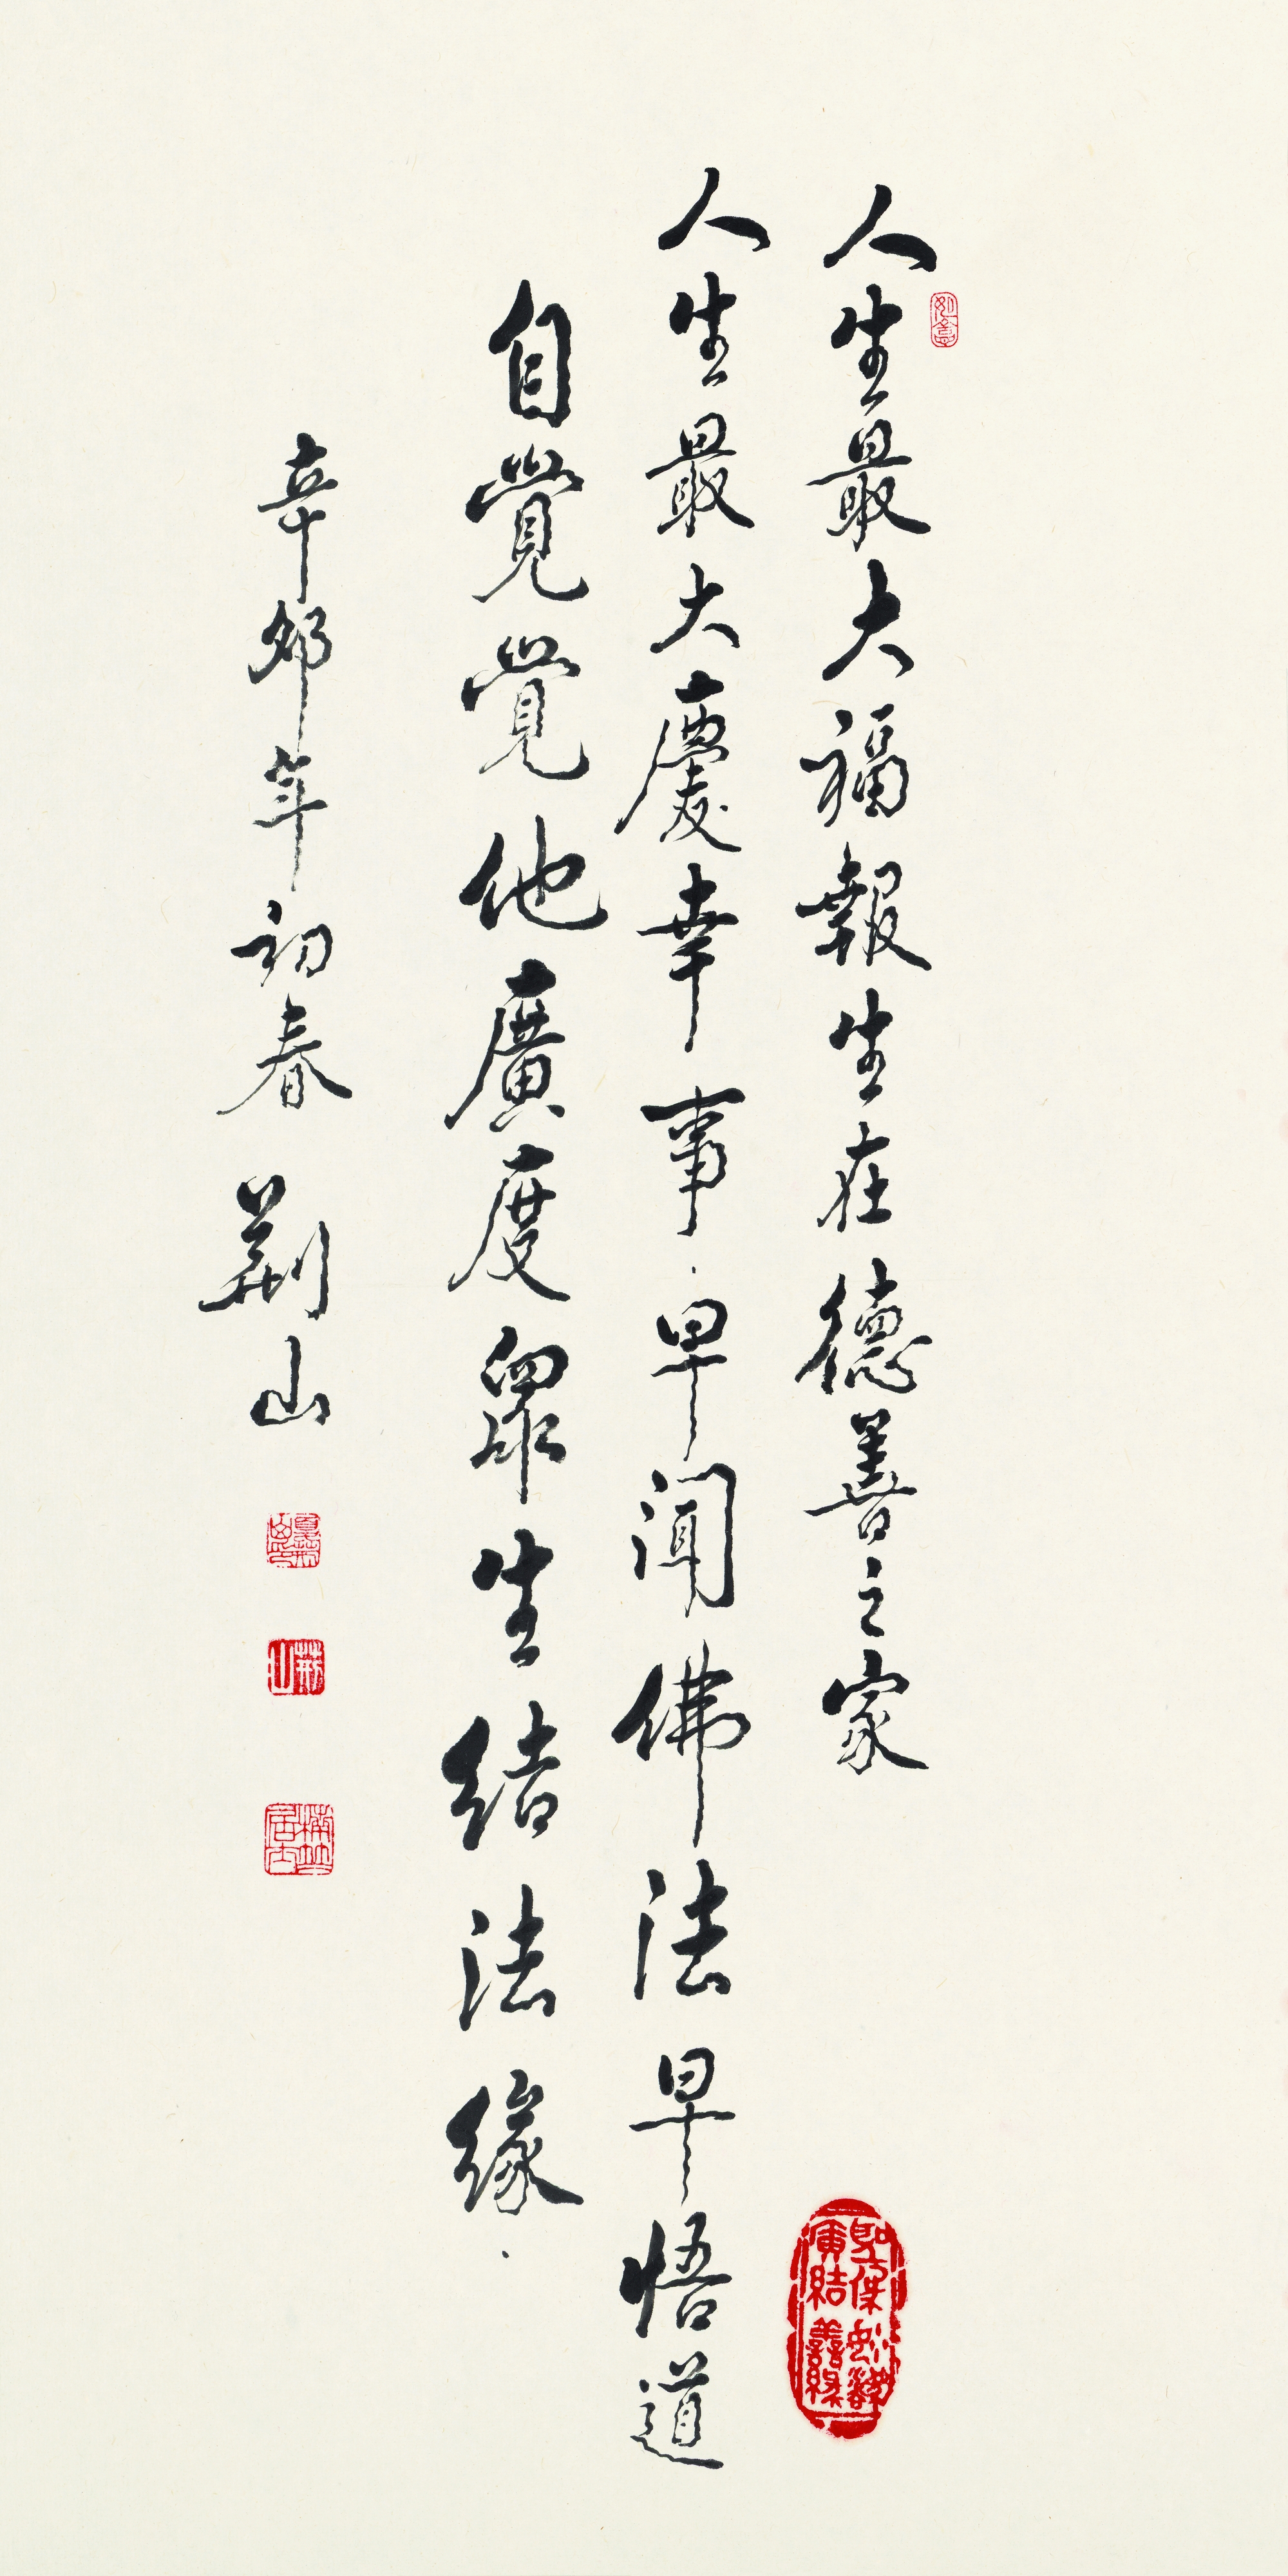 人生最大福報生在德善之家
人生最大慶幸事早聞佛法早悟道
自覺覺他廣度眾生結法緣
辛卯年初春 荆山
如意
荆山
廣結善緣